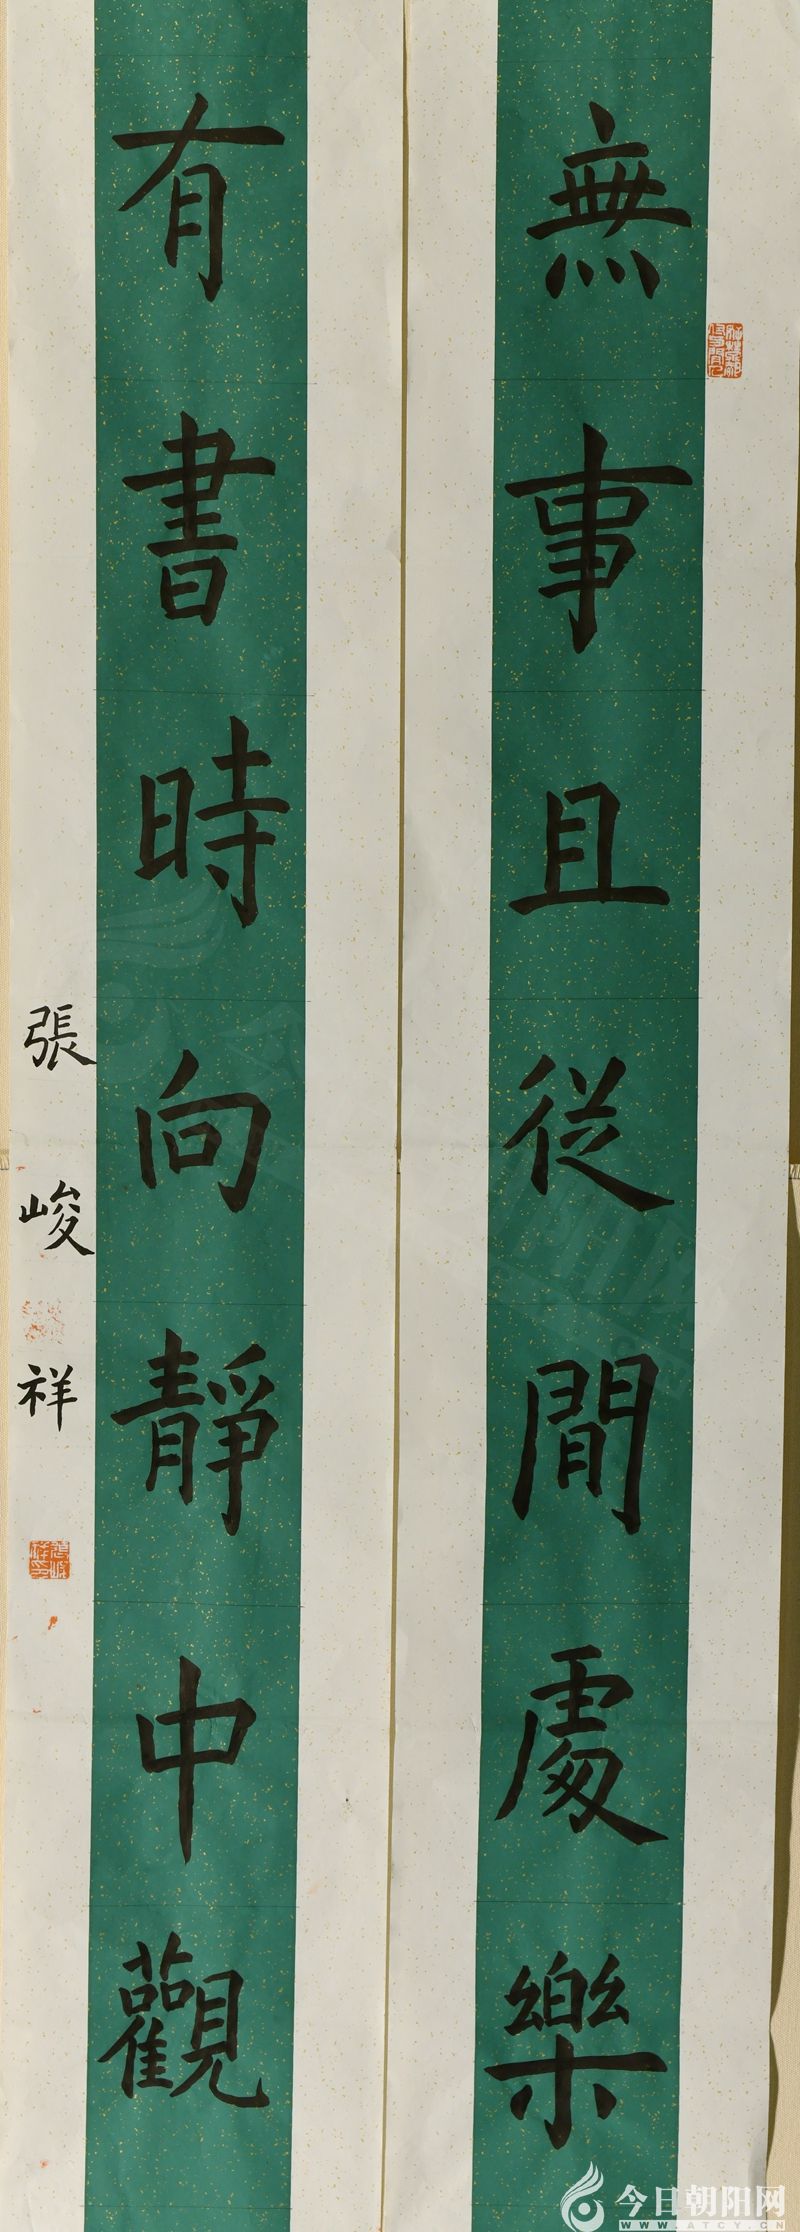 無事且從間處樂
有書時向靜中觀
張峻祥
今日朝阳网
WWW.ATCY.CN